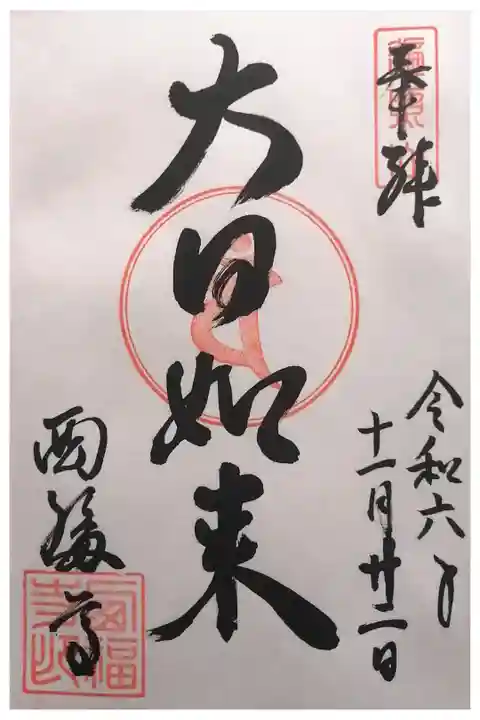 奉拝
大日如来
令和六年
十一月廿二日
西福寺